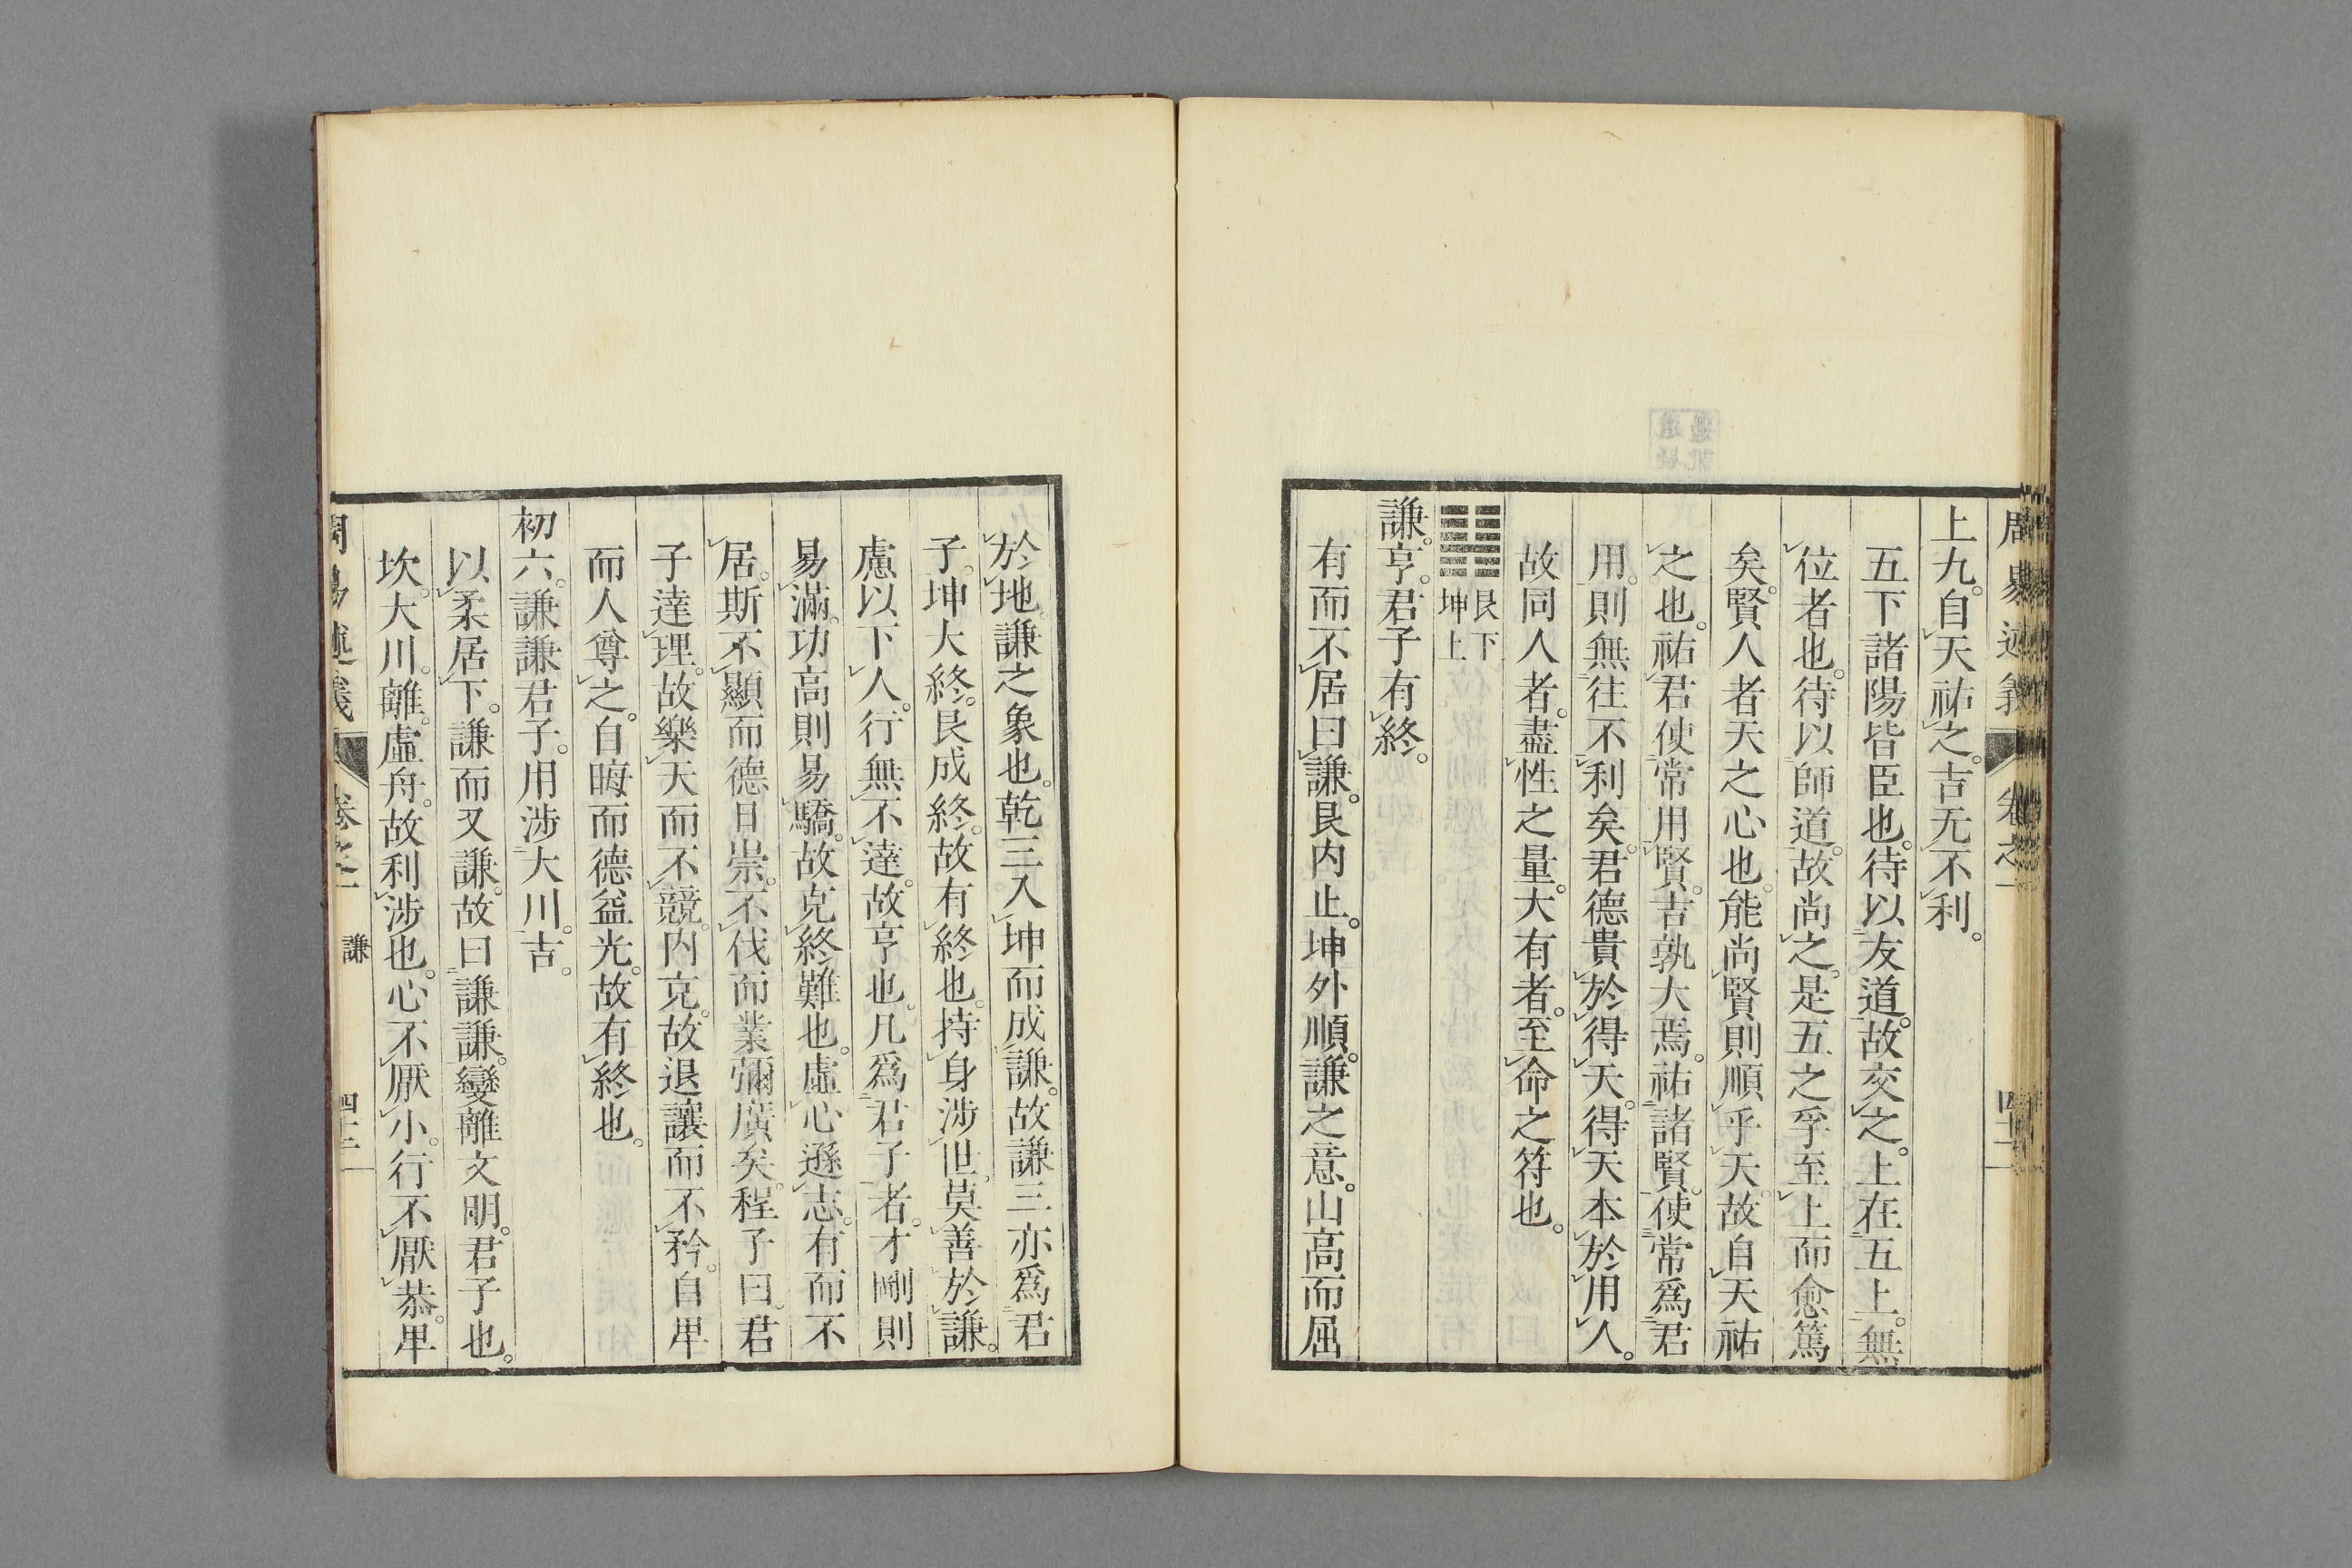 周易述義 卷之一 四十二
上九。自天祐之。吉无不利。
五下諸陽皆臣也。待以友道。故交之。上在五上。無
位者也。待以師道。故尚之。是五之孚至上而愈篤
矣。賢人者天之心也。能尚賢則順乎天。故自天祐
之也。祐君使常用賢。吉孰大焉。祐諸賢。使常爲君
用。則無往不利矣。君德貴於得天。得天本於用人。
故同人者。盡性之量。大有者。至命之符也。
艮下
坤上
謙。亨。君子有終。
有而不居曰謙。艮内止。坤外順。謙之意。山高而屈
於地。謙之象也。乾三入坤而成謙。故謙三亦爲君
子。坤大終。艮成終。故有終也。持身涉世。莫善於謙。
慮以下人。行無不達。故亨也。凡爲君子者。才剛則
易滿。功高則易驕。故克終難也。虛心遜志。有而不
居。斯不顯而德日崇。不伐而業彌廣矣。程子曰。君
子達理。故樂天而不競。内充。故退讓而不矜。自卑
而人尊之。自晦而德益光。故有終也。
初六。謙謙君子。用涉大川。吉。
以柔居下。謙而又謙。故曰謙謙。變離文明。君子也。
坎。大川。離。虛舟。故利涉也。心不厭小。行不厭恭。卑
周易述義 卷之一 謙 四十二